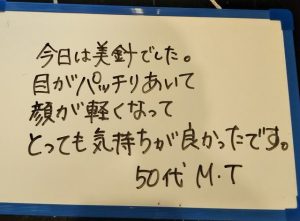 今日は美針でした。
目がパッチリあいて
顔が軽くなって
とっても気持ちが良かったです。
50代 M・T